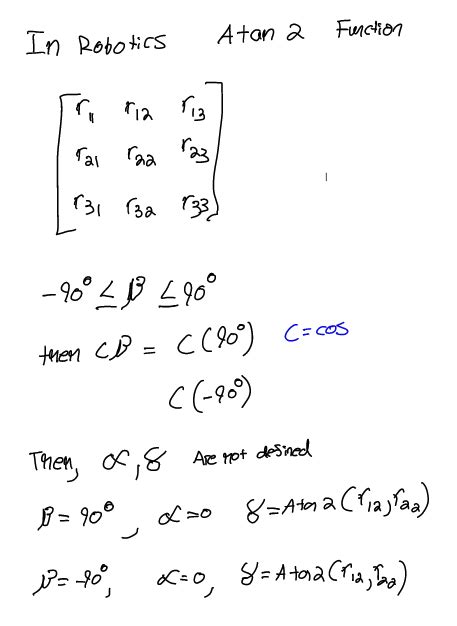 In Robotics Atan2 Function
r11 r12 r13
r21 r22 r23
r31 r32 r33
-90° ≤ β ≤ 90°
then Cβ = C(90°) C=cos
C(-90°)
Then, α, γ Are not desined
β = 90°, α=0 γ=Atan2(r12,r22)
β=-90°, α=0, γ=Atan2(r12,r22)